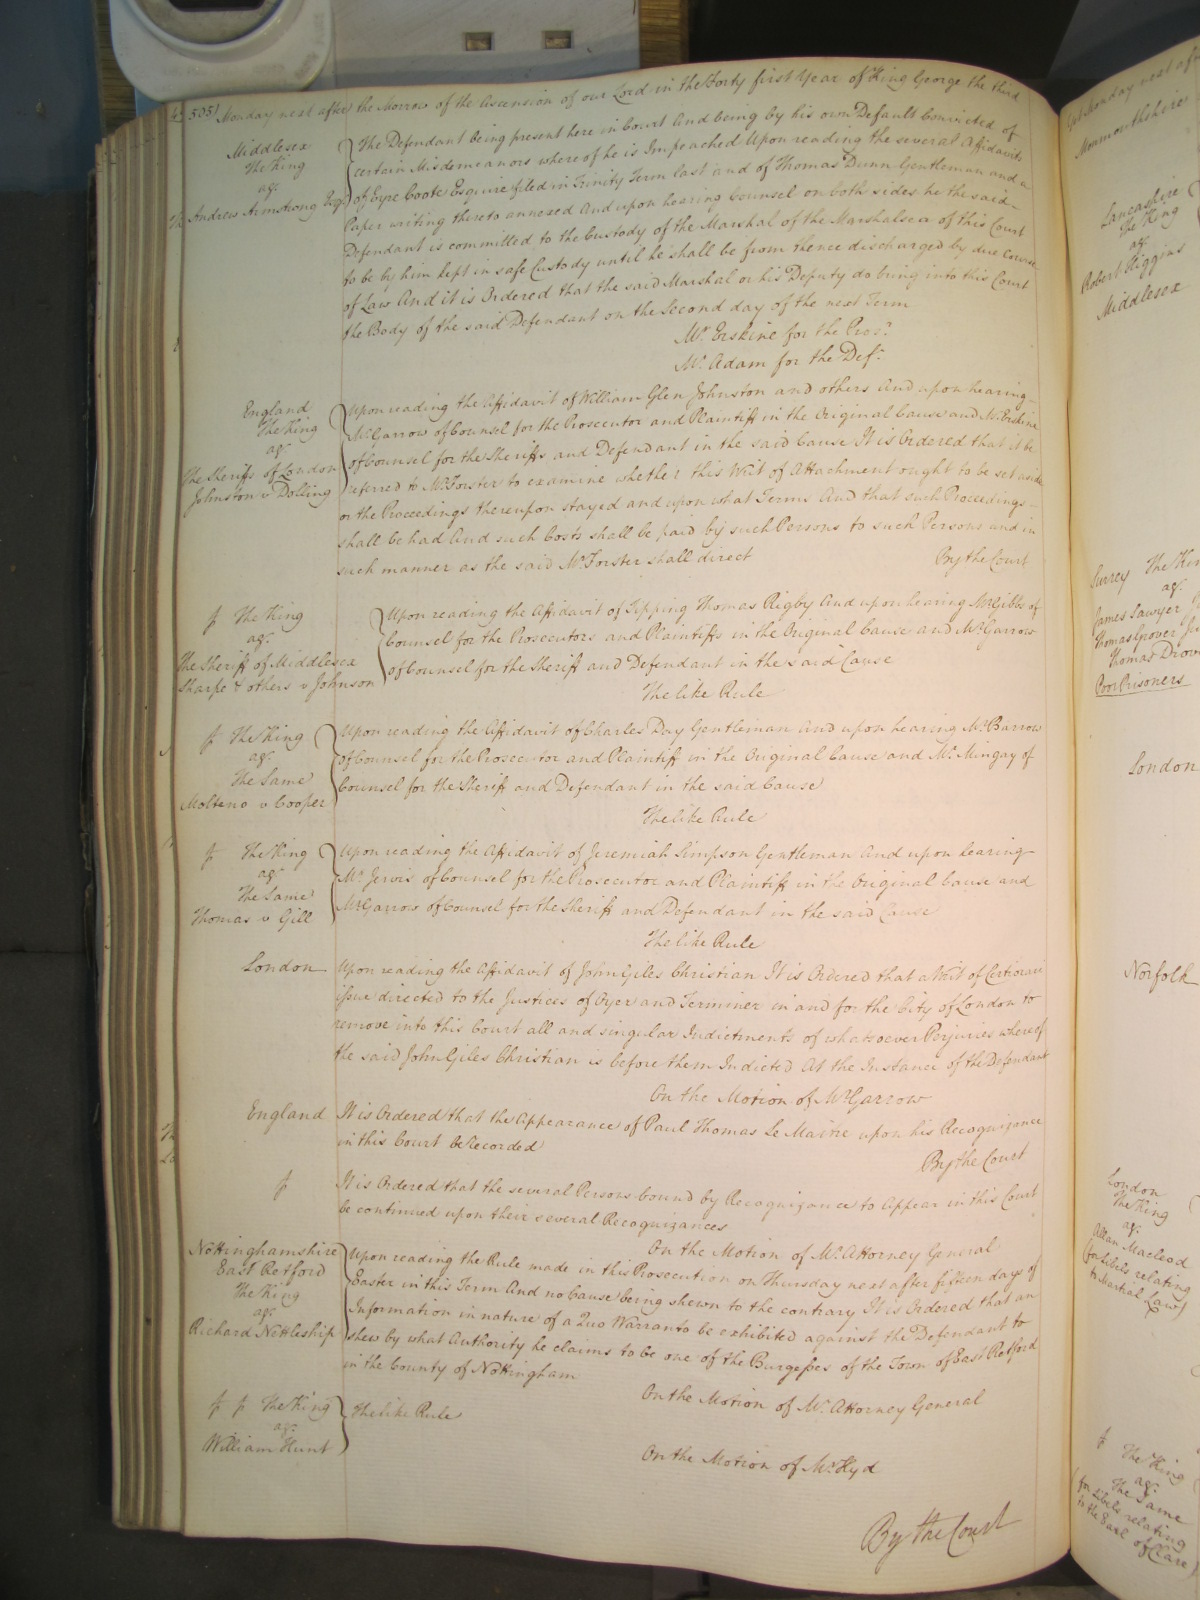 505 Monday next after the Morrow of the Ascension of our Lord in the Forty first Year of King George the third
Middlesex
The King
agt
Andrew Armstrong Esqr
The Defendant being present here in Court And being by his own Default Convicted of
certain Misdemeanors whereof he is Impeached Upon reading the several Affidavits
of Eyre Coote Esquire filed in Trinity Term last and of Thomas Dunn Gentleman and a
Paper writing thereto annexed And upon hearing Counsel on both sides he the said
Defendant is committed to the Custody of the Marshal of the Marshalsea of this Court
to be by him kept in safe Custody until he shall be from thence discharged by due Course
of Law And it is Ordered that the said Marshal or his Deputy do bring into this Court
the Body of the said Defendant on the Second day of the next Term
Mr. Erskine for the Pros.r
Mr. Adam for the Def.t
England
The King
agt
The Sheriffs of London
Johnston v Dolling
Upon reading the Affidavit of William Glen Johnston and others And upon hearing
Mr Garrow of Counsel for the Prosecutor and Plaintiff in the Original Cause and Mr Erskine
of Counsel for the Sheriffs and Defendant in the said Cause It is Ordered that it be
referred to Mr Forster to examine whether this Writ of Attachment ought to be set aside
or the Proceedings thereupon stayed and upon what Terms And that such Proceedings
shall be had And such Costs shall be paid by such Persons to such Persons and in
such manner as the said Mr Forster shall direct
By the Court
The King
agt
The Sheriff of Middlesex
Sharpe & others v Johnson
Upon reading the Affidavit of Tipping Thomas Rigby And upon hearing Mr Gibbs of
Counsel for the Prosecutors and Plaintiffs in the Original Cause and Mr Garrow
of Counsel for the Sheriff and Defendant in the said Cause
The like Rule
The King
agt
The Same
Molteno v Cooper
Upon reading the Affidavit of Charles Day Gentleman And upon hearing Mr Barrow
of Counsel for the Prosecutor and Plaintiff in the Original Cause and Mr Mingay of
Counsel for the Sheriff and Defendant in the said Cause
The like Rule
The King
agt
The Same
Thomas v Gill
Upon reading the Affidavit of Jeremiah Simpson Gentleman And upon hearing
Mr Jervis of Counsel for the Prosecutor and Plaintiff in the Original Cause and
Mr Garrow of Counsel for the Sheriff and Defendant in the said Cause
The like Rule
London
Upon reading the Affidavit of John Giles Christian It is Ordered that a Writ of Certiorari
issue directed to the Justices of Oyer and Terminer in and for the City of London to
remove into this Court all and singular Indictments of whatsoever Perjuries whereof
the said John Giles Christian is before them Indicted At the Instance of the Defendant
On the Motion of Mr Garrow
England
It is Ordered that the Appearance of Paul Thomas Le Maitre upon his Recognizance
in this Court be recorded
By the Court
It is Ordered that the several Persons bound by Recognizance to Appear in this Court
be continued upon their several Recognizances
On the Motion of Mr Attorney General
Nottinghamshire
East Retford
The King
agt
Richard Nettleship
Upon reading the Rule made in this Prosecution on Thursday next after fifteen days of
Easter in this Term And no Cause being shewn to the contrary It is Ordered that an
Information in nature of a Quo Warranto be exhibited against the Defendant to
shew by what Authority he claims to be one of the Burgesses of the Town of East Retford
in the County of Nottingham
On the Motion of Mr Attorney General
The King
agt
William Hunt
The like Rule
On the Motion of Mr Hyd
By the Court
Monday next
Monmouthshire
Lancashire
The King
agt
Robert Higgins
Middlesex
Surrey The
agt
James Sawyer
Thomas Grover
Thomas
Poor Prisoners
London
Norfolk
London
The King
agt
Allan Macleod
(for Libels relating
to Martial Law)
The King
agt
The Same
(for Libels relating
to the Earl of Clare)